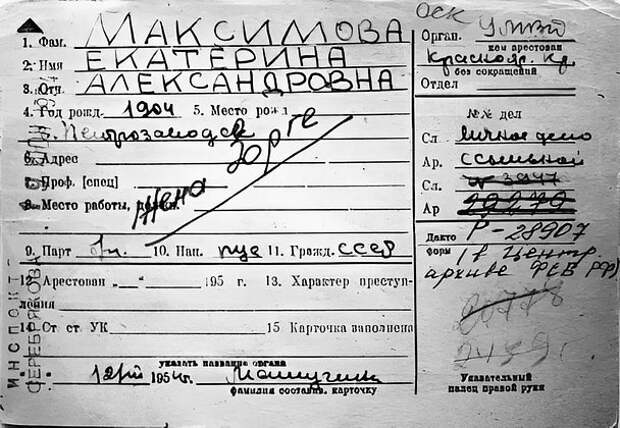 1. Фам. МАКСИМОВА
2. Имя ЕКАТЕРИНА
3. Отч. АЛЕКСАНДРОВНА
4. Год рожд. 1904 5. Место рожд
г. Петрозаводск
6. Адрес
7. Проф. [спец]
8. Место работы,
Жена Зорге
9. Парт б/п. 10. Нац. рус 11. Гражд. СССР
12 Арестован „ “ 195 г. 13. Характер преступ-
ления
14 От ст УК 15 Карточка заполнена
указать название органа
12 195 г.
фамилия составив. карточку
ИНСПЕКТ
СЕРЕБРЯКОВА
Оск
Орган. УМВД
кем арестован
Краснояр. Кр.
без сокращений
Отдел
№№ дел
Сл личное дело
Ар. ссыльной
Сл. № 3947
Ар 29279
Дакто Р-28907
форм (в Центр.
архиве ФСБ РФ)
20778
Указательный
палец правой руки